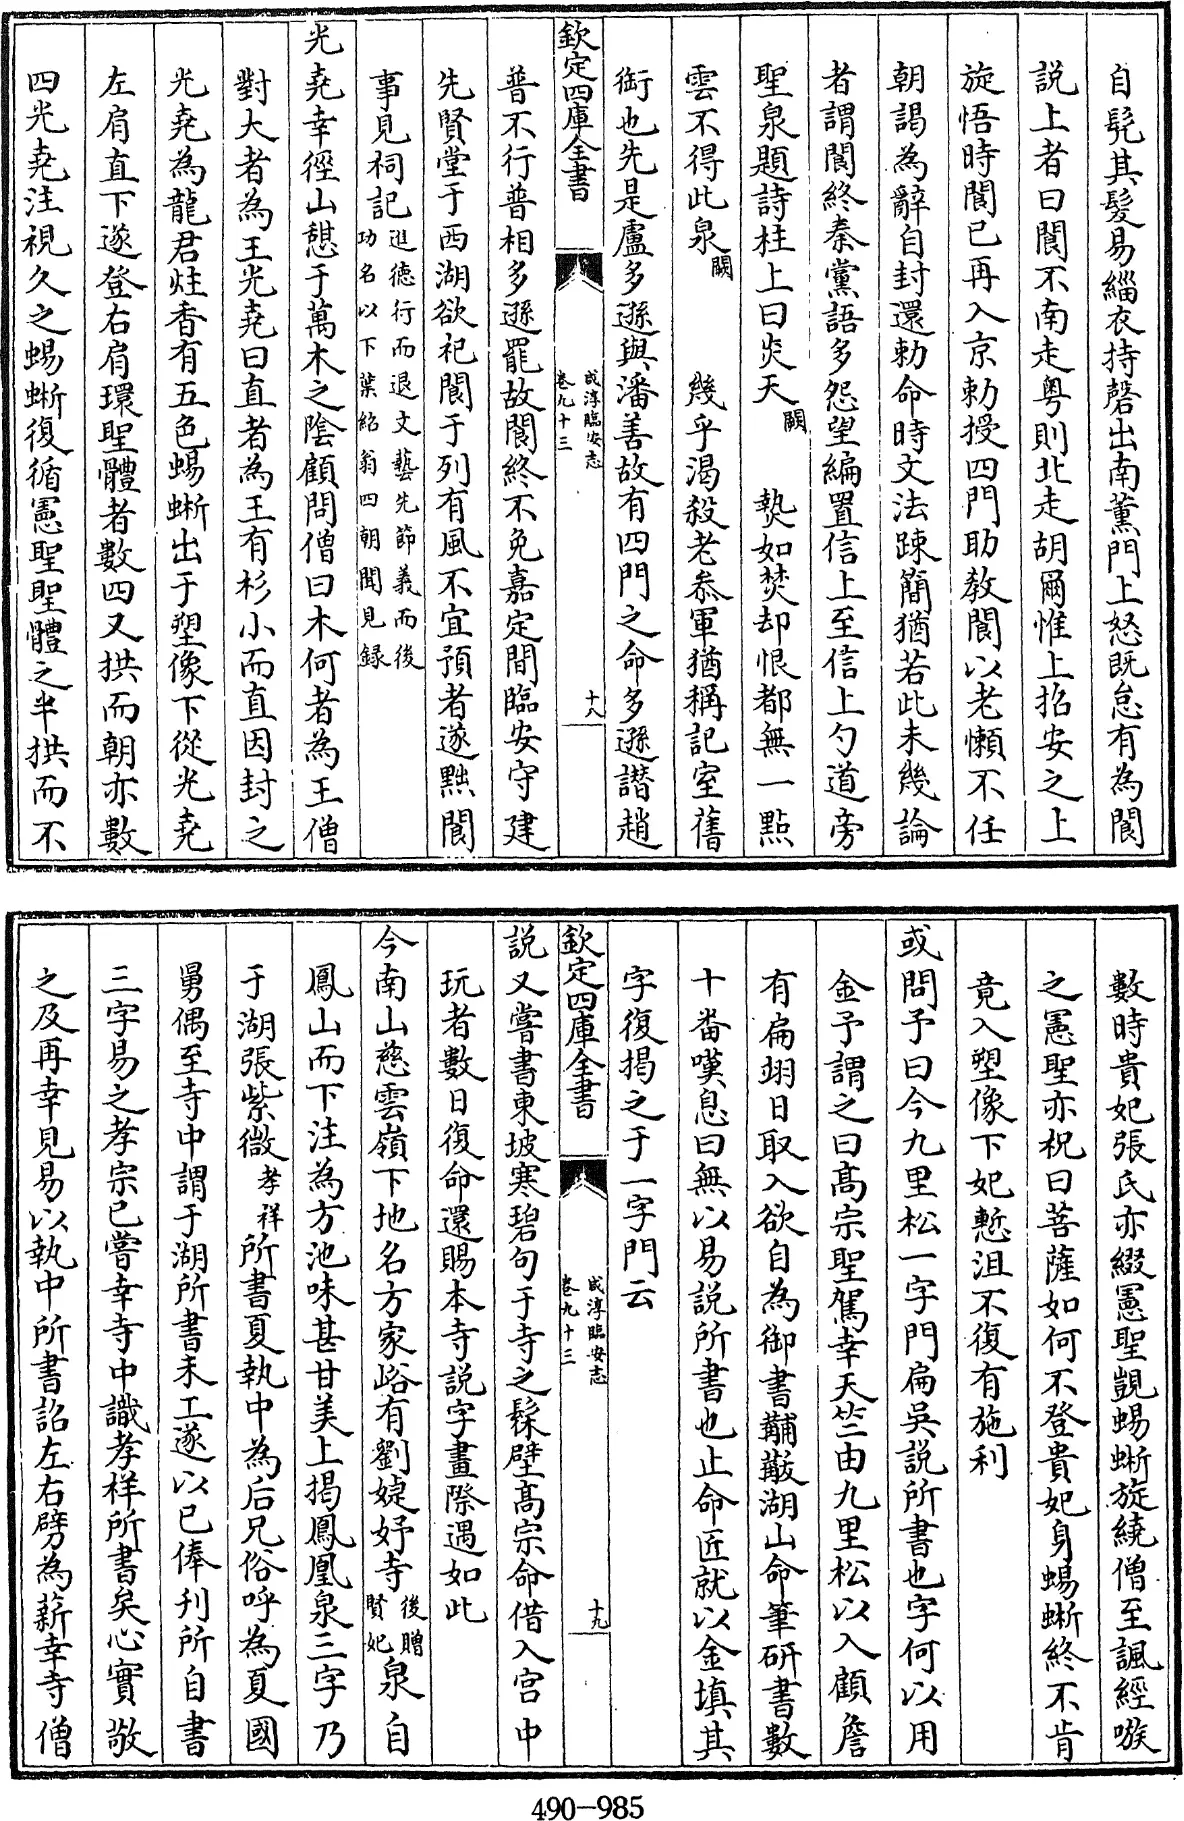 自髠其髮易緇衣持磬出南薰門上怒旣怠有為閬
説上者曰閬不南走粤則北走胡爾惟上招安之上
旋悟時閬已再入京勅授四門助教閬以老懶不任
朝謁為辭自封還勅命時文法踈簡猶若此未幾論
者謂閬終秦黨語多怨望編置信上至信上勺道旁
聖泉題詩柱上曰炎天闕 熱如焚却恨都無一點
雲不得此泉闕 幾乎渴殺老叅軍猶稱記室舊
銜也先是盧多遜與潘善故有四門之命多遜譖趙
欽定四庫全書 咸淳臨安志 卷九十三 十八
普不行普相多遜罷故閬終不免嘉定間臨安守建
先賢堂于西湖欲祀閬于列有風不宜預者遂黜閬
事見祠記逛徳行而退文藝先節義而後功名以下葉紹翁四朝聞見録
光堯幸徑山憇于萬木之陰顧問僧曰木何者為王僧
對大者為王光堯曰直者為王有杉小而直因封之
光堯為龍君炷香有五色蜴蜥出于塑像下從光堯
左肩直下遂登右肩環聖體者數四又拱而朝亦數
四光堯注視久之蜴蜥復循憲聖聖體之半拱而不
數時貴妃張氏亦綴憲聖覬蜴蜥旋繞僧至諷經㗋
之憲聖亦祝曰菩薩如何不登貴妃身蜴蜥終不肯
竟入塑像下妃慙沮不復有施利
或問予曰今九里松一字門扁吳説所書也字何以用
金予謂之曰髙宗聖駕幸天竺由九里松以入顧詹
有扁翊日取入欲自為御書黼黻湖山命筆研書數
十畨嘆息曰無以易説所書也止命匠就以金填其
字復揭之于一字門云
欽定四庫全書 咸淳臨安志 卷九十三 十九
説又嘗書東坡寒碧句于寺之髹壁髙宗命借入宫中
玩者數日復命還賜本寺説字畫際遇如此
今南山慈雲嶺下地名方家峪有劉婕妤寺後贈賢妃泉自
鳳山而下注為方池味甚甘美上揭鳳凰泉三字乃
于湖張紫微孝祥所書夏執中為后兄俗呼為夏國
舅偶至寺中謂于湖所書未工遂以已俸刋所自書
三字易之孝宗已嘗幸寺中識孝祥所書矣心實敬
之及再幸見易以執中所書詔左右劈為薪幸寺僧
490-985